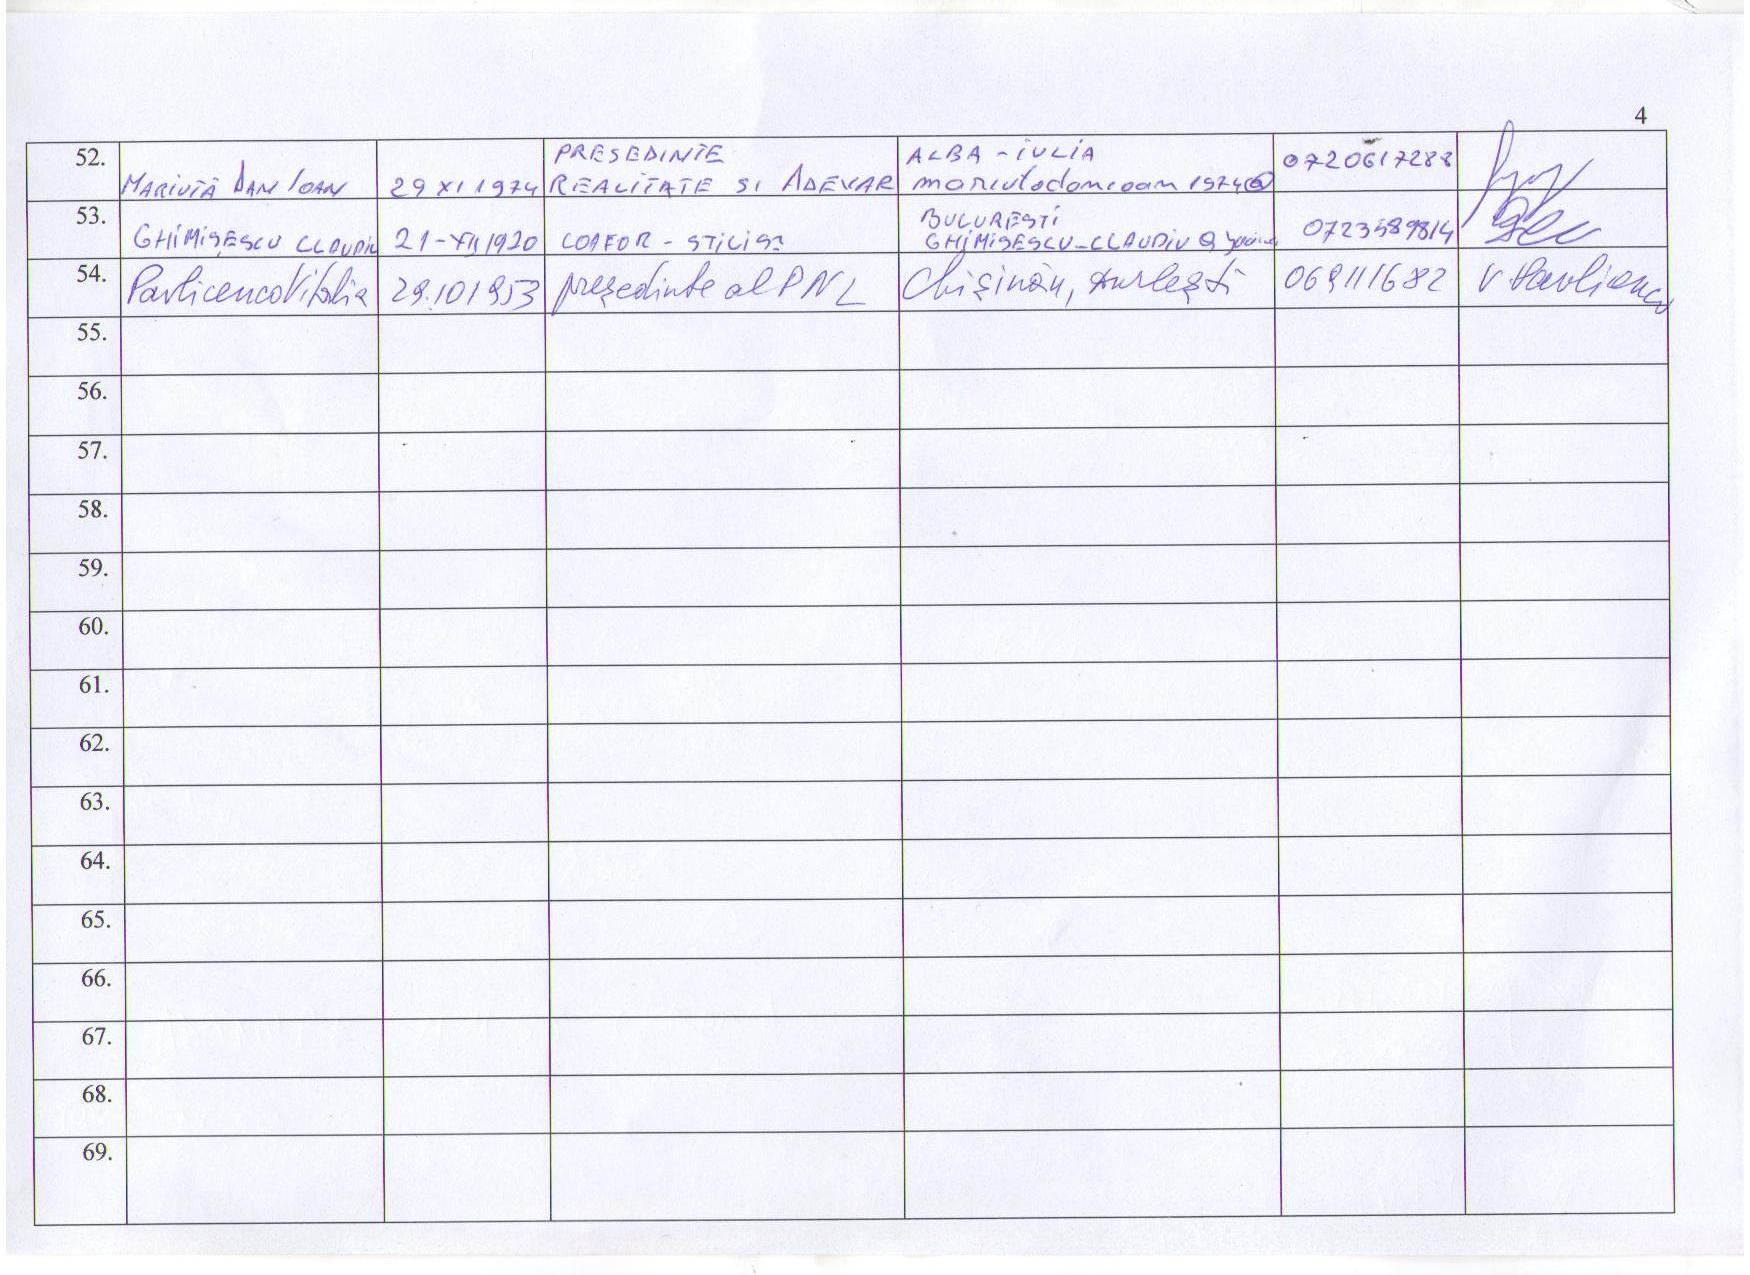 4
52. MARIUTĂ DAN IOAN 29 XI 1974 PRESEDINTE REALITATE SI ADEVAR ALBA - IULIA 0720617288
53. GHIMIȘESCU CLAUDIU 21-XII 1920 COAFOR - STILIST BUCUREȘTI GHIMIȘESCU-CLAUDIU @
54. Pavlicenco Vitalia 29.10 1953 președinte al PNL Chișinău, Durlești 069111682 V Pavlicenco
55.
56.
57.
58.
59.
60.
61.
62.
63.
64.
65.
66.
67.
68.
69.